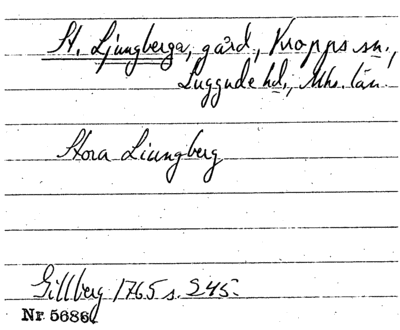 St. Ljungberga, gård, Kropps sn.,
Luggude hd., Mhs. län.
Stora Liungberg
Gillberg 1765 s. 245.
Nr. 5686